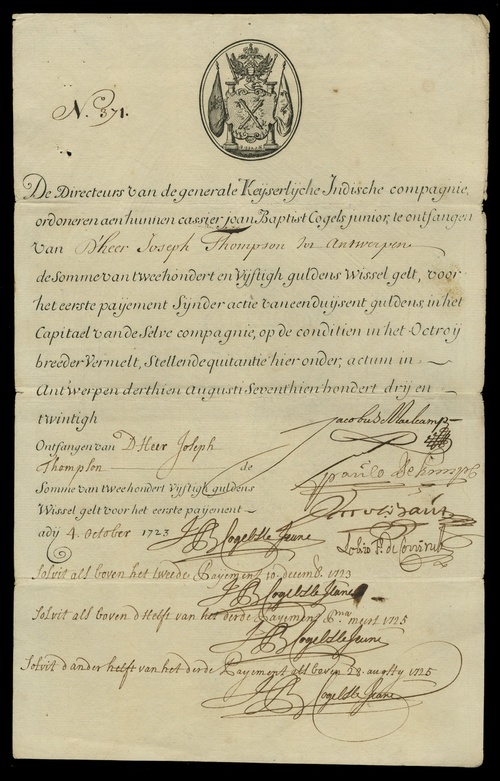 N.º 371.
De Directeurs van de generale Keyserlijche Indische compagnie,
ordoneren aen hunnen cassier joan Baptist Cogels junior, te ontfangen
van D'heer Joseph Thompson tot Antwerpen
de Somme van tweehondert en Vijftigh guldens Wissel gelt, voor
het eerste payement Sijnder actie van een duijsent guldens, in het
Capitael van de Selve compagnie, op de conditien in het Octroij
breeder Vermelt, Stellende quitantie hier onder, actum in
Antwerpen derthien Augusti Seventhien hondert drij en
twintigh
Jacobus De Maelcamp
Ontfangen van D Heer Joseph
Thompson de
Paulo De Kimpe
Somme van tweehondert Vijftigh guldens
Wissel gelt voor het eerste payement
adij 4. October 1723 JB Cogels Le Jeune
Solvit als boven het tweede Payement 10 decemb. 1723
JB Cogels Le Jeune
Solvit als boven d'Helft van het derde Payement meert 1725
JB Cogels Le Jeune
Solvit d'ander helft van het derde Payement als boven 28. aug 1725
JB Cogels Le Jeune